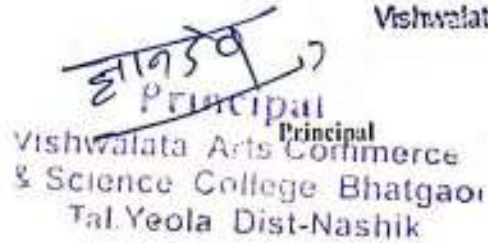 Vishwalat
ज्ञानदेव
Principal
Principal
Vishwalata Arts Commerce
& Science College Bhatgaon
Tal.Yeola Dist-Nashik